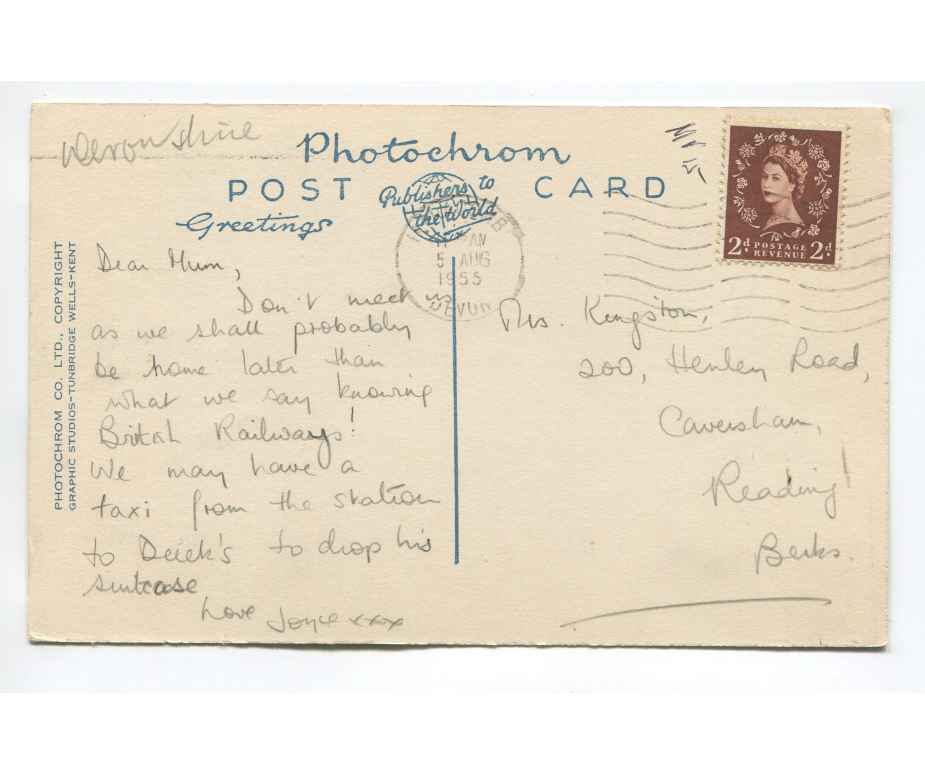 Devonshire
Photochrom
POST CARD
Publishers to
the World
Greetings
PHOTOCHROM CO. LTD., COPYRIGHT
GRAPHIC STUDIOS-TUNBRIDGE WELLS-KENT
5 AUG
1955
DEVON
2D POSTAGE 2D
REVENUE
Dear Mum,
Don't meet us
as we shall probably
be home later than
what we say knowing
British Railways!
We may have a
taxi from the station
to Derek's to drop his
suitcase
Love Joyce xxx
Mrs. Kingston,
200, Henley Road,
Caversham,
Reading!
Berks.